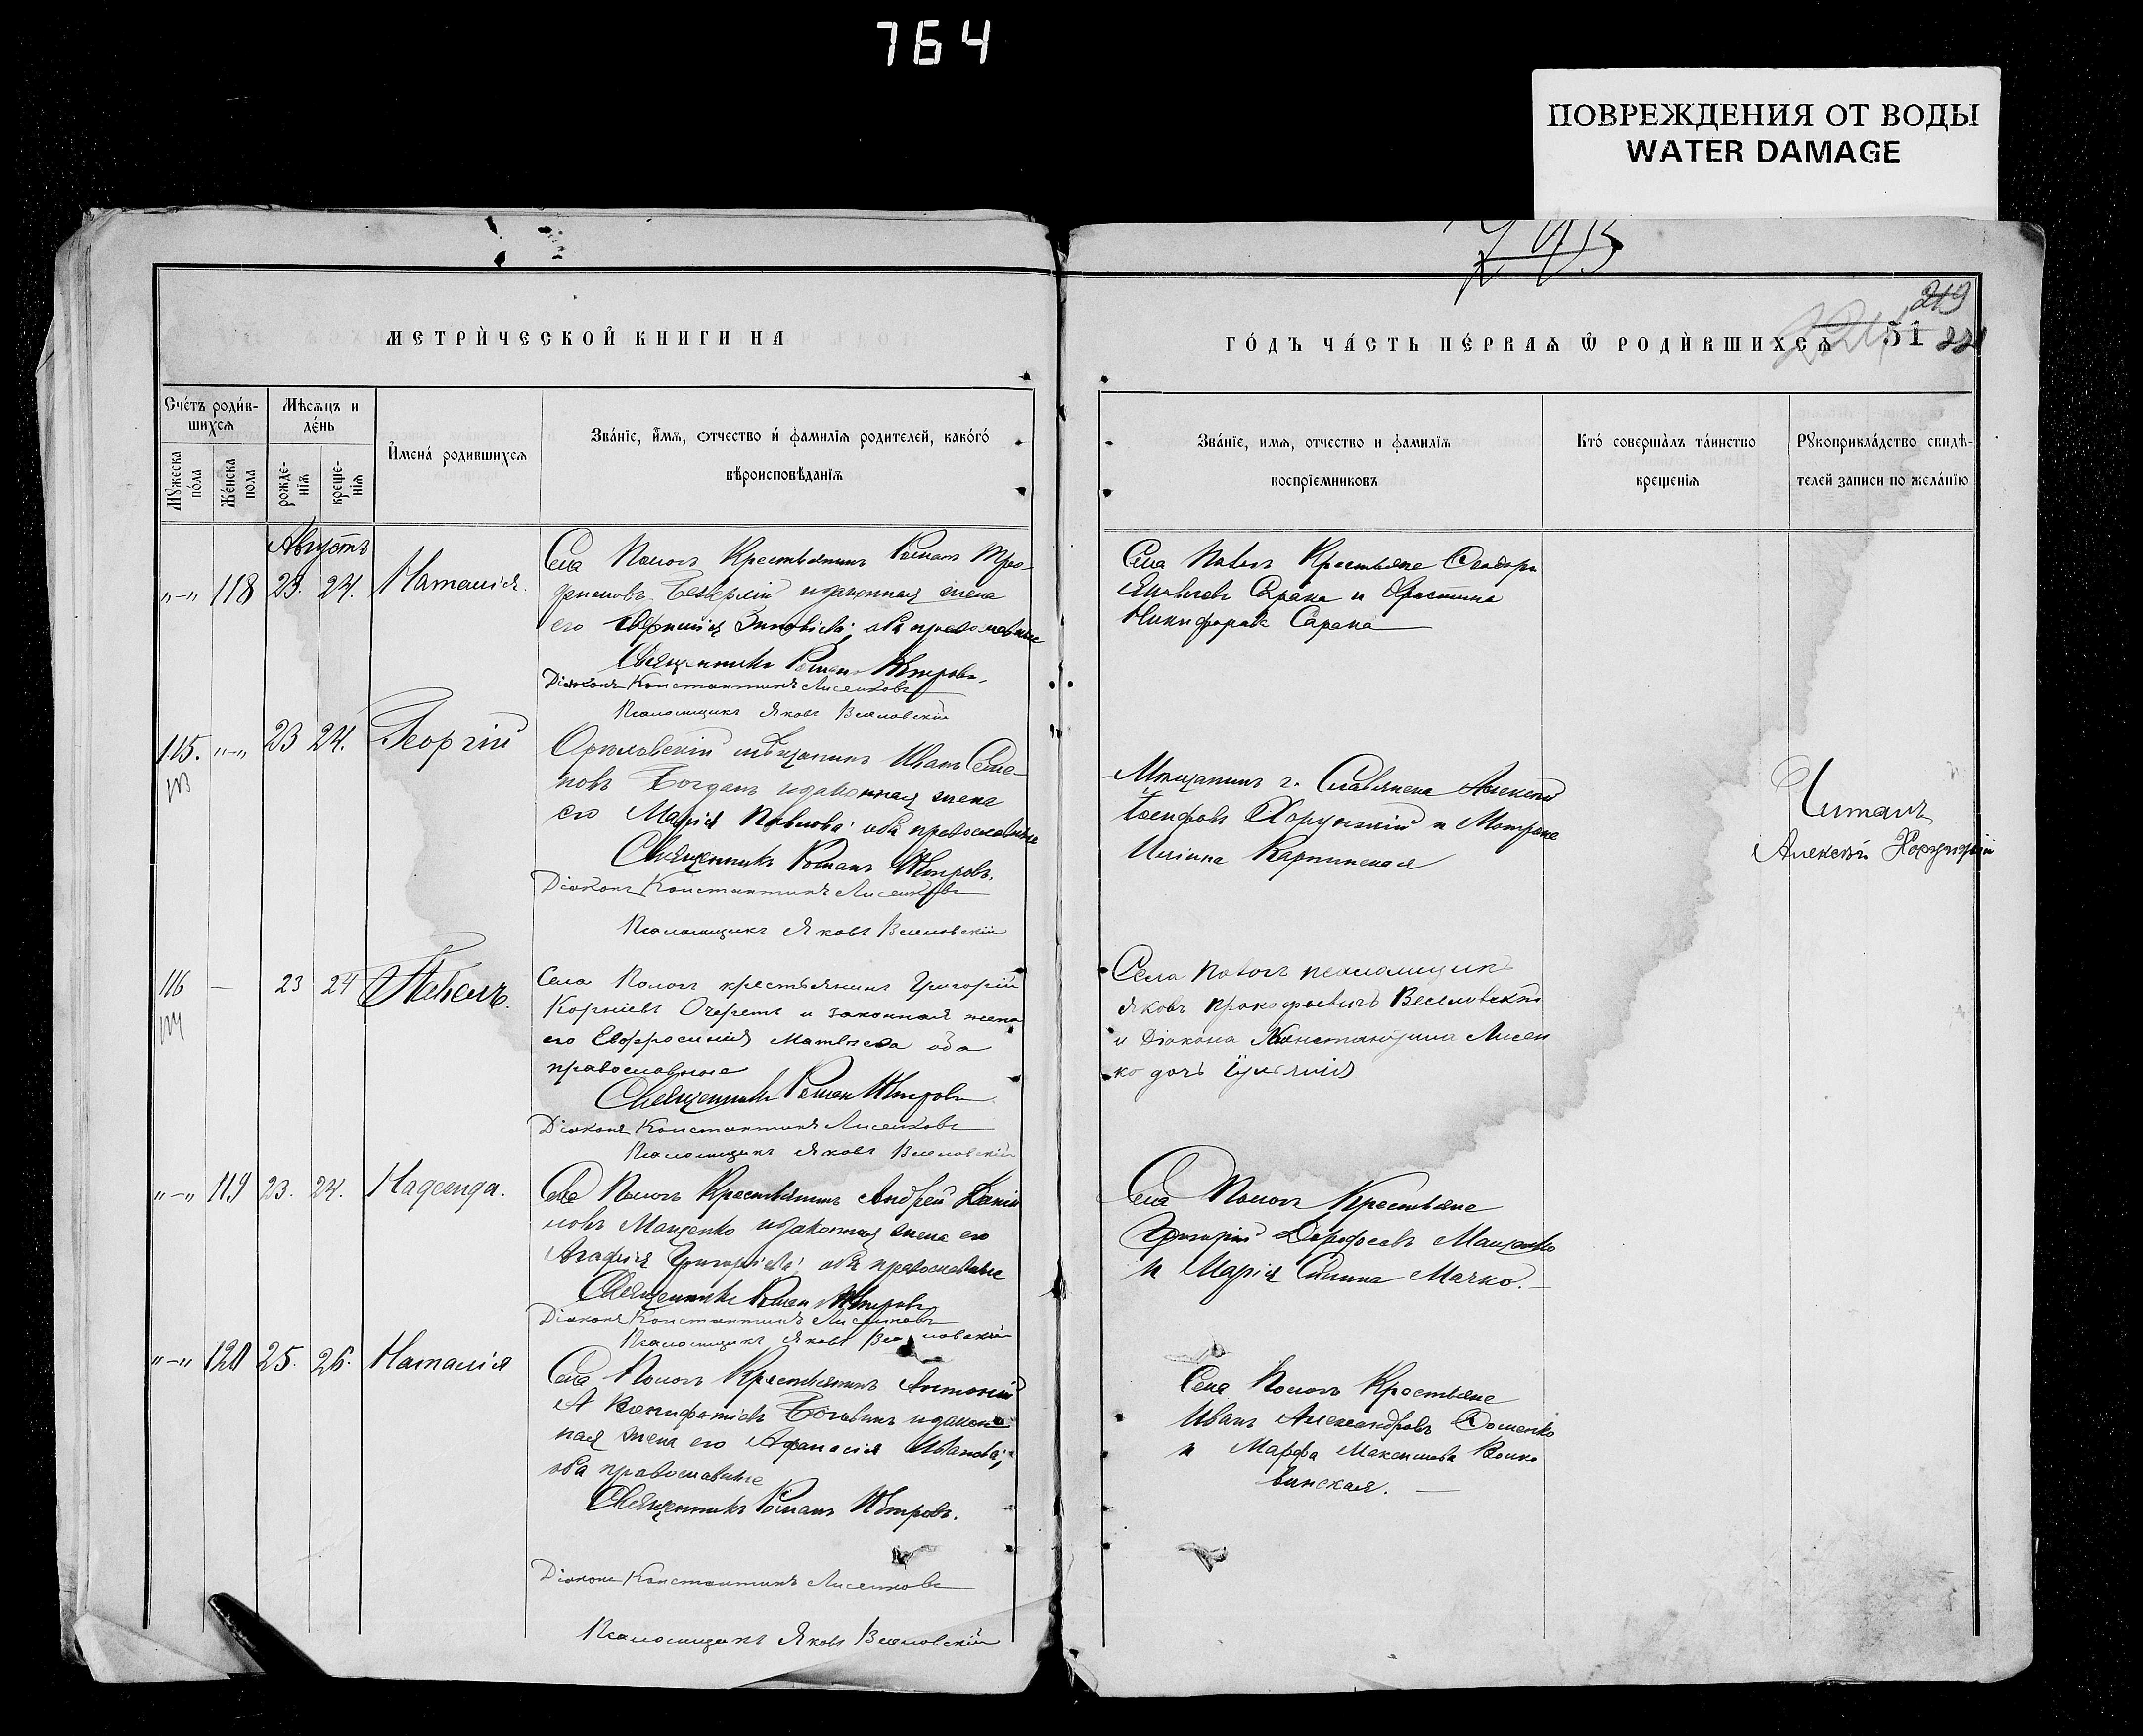 764
ПОВРЕЖДЕНИЯ ОТ ВОДЫ
WATER DAMAGE
МЕТРЍЧЕСКОЙ КНИГИ НА
ГО́ДЪ ЧА́СТЬ ПЕ́РВАѦ Ѡ РОДИ́ВШИХСѦ
51
219
Сче́тъ роди́в-
шихсѧ
Мѣсѧцъ и
де́нь
И҆мена́ родившихсѧ
Зва́нїе, и҆́мѧ, отчество и҆ фамилїѧ родителей, како́гѡ
вѣроисповѣданїѧ
Мꙋжеска
по́ла
Же́нска
пола
рожде-
нїѧ
креще-
нїѧ
Зва́нїе, имѧ, отчество и фамилїѧ
воспрїемниковъ
Кто́ соверша́лъ та́инство
крещенїѧ
Рꙋкоприкла́дство свидѣ-
телей записи по жела́нїю
Августъ
„-„ 118 23. 24. Наталія.
Села Пологъ Крестьянинъ Романъ Тро-
фимовъ изаконная жена
его Зиновіева; оба православные
Священникъ Романъ Петровъ.
Діаконъ Константинъ Лисенковъ
Псаломщикъ Яковъ Веселовскій
Села Пологъ Крестьяне Ѳеодоръ
Яковлевъ Сарана и Христина
Никифорова Сарана
115. „-„ 23 24. Георгій
Ореховскій мѣщанинъ Иванъ Семе-
новъ Богданъ изаконная жена
его Марія Павлова; оба православные
Священникъ Романъ Петровъ.
Діаконъ Константинъ Лисенковъ
Псаломщикъ Яковъ Веселовскій
Мѣщанинъ г. Славянска Алексѣй
Іосифовъ Хорунжій и Матрона
Ильина Карпинская
Читалъ
Алексѣй Хорунжій
116 — 23 24 Павелъ.
Села Пологъ крестьянинъ Григорій
Корніевъ Очеретъ и законная жена
его Евфросинія Матвѣева оба
православные
Священникъ Романъ Петровъ
Діаконъ Константинъ Лисенковъ
Псаломщикъ Яковъ Веселовскій
Села Пологъ псаломщикъ
Яковъ Прокофьевичъ Веселовскій
и Діакона Константина Лисен
ко дочь Іуліанія
„-„ 119 23. 24. Надежда.
Села Пологъ Крестьянинъ Андрей Даніи
ловъ Маценко изаконная жена его
Агафія Григоріева; оба православные
Священникъ Романъ Петровъ
Діаконъ Константинъ Лисенковъ
Псаломщикъ Яковъ Веселовскій
Села Пологъ Крестьяне
Григорій Дорофеевъ Маценко
и Марія Силина Мачко.
„-„ 120 25. 26. Наталія
Села Пологъ Крестьянинъ Антоній
Вонифатіевъ изакон
ная жена его Афанасія Иванова;
оба православные
Священникъ Романъ Петровъ.
Діаконъ Константинъ Лисенковъ
Псаломщикъ Яковъ Веселовскій
Села Пологъ Крестьяне
Иванъ Александровъ Доменко
и Марфа Максимова Волко
винская.